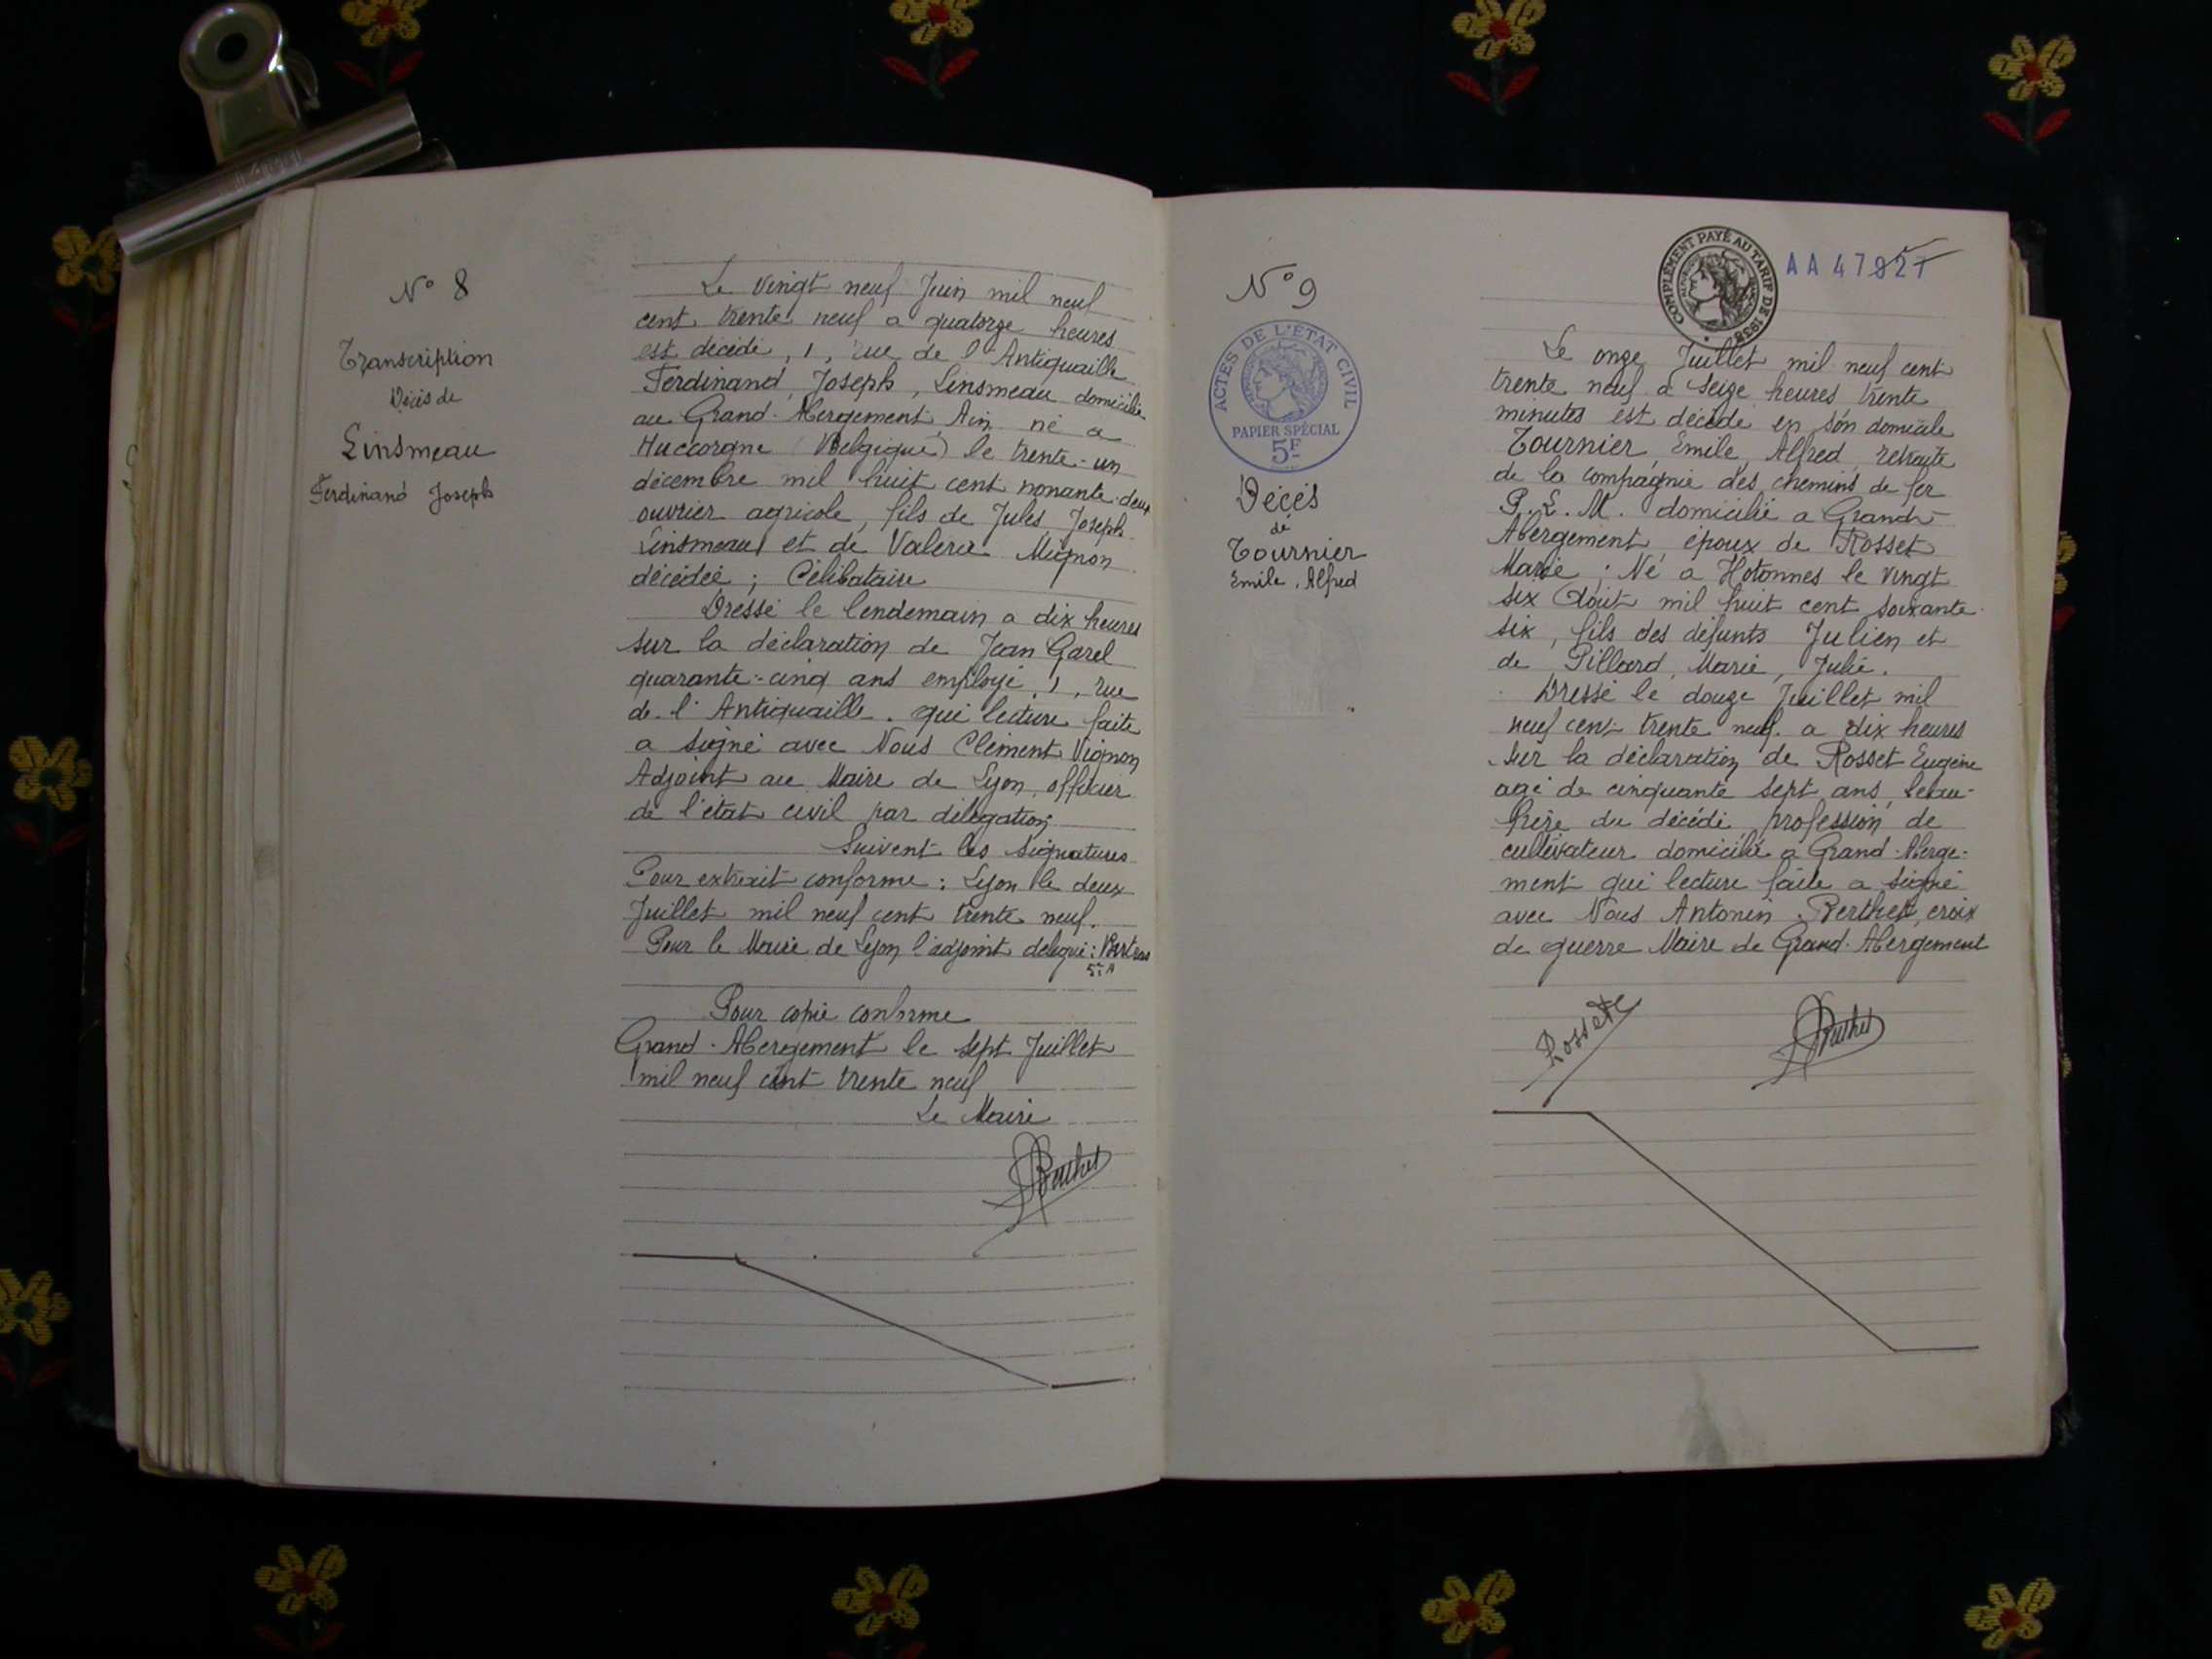 N° 8
Transcription
Décès de
Linsmeau
Ferdinand Joseph
Le vingt neuf Juin mil neuf
cent trente neuf a quatorze heures
est décédé, 1, rue de l'Antiquaille
Ferdinand, Joseph, Linsmeau domicilié
au Grand-Abergement Ain né a
Huccorgne (Belgique) le trente-un
décembre mil huit cent nonante-deux
ouvrier agricole, fils de Jules Joseph
Linsmeau et de Valerie Mignon
décédée ; Célibataire
Dressé le lendemain a dix heures
sur la déclaration de Jean Garel
quarante-cinq ans employé, 1, rue
de l'Antiquaille. qui lecture faite
a signé avec Nous Clément Vignon
Adjoint au Maire de Lyon, officier
de l'état civil par délégation
Suivent les signatures
Pour extrait conforme : Lyon le deux
Juillet mil neuf cent trente neuf.
Pour le Maire de Lyon l'adjoint délégué :
Pour copie conforme
Grand-Abergement le sept Juillet
mil neuf cent trente neuf
Le Maire
Berthet
N° 9
ACTES DE L'ÉTAT CIVIL
PAPIER SPÉCIAL
5F
Décès
de
Tournier
Emile. Alfred
COMPLÉMENT PAYÉ AU TARIF DE 1938
AA 47927
Le onze Juillet mil neuf cent
trente neuf a seize heures trente
minutes est décédé en son domicile
Tournier, Emile, Alfred, retraité
de la compagnie des chemins de fer
P.L.M. domicilié a Grand-
Abergement, époux de Rosset
Marie ; Né a Hotonnes le vingt
six Août mil huit cent soixante
six, fils des défunts Julien et
de Pillard, Marie, Julie.
Dressé le douze Juillet mil
neuf cent trente neuf. a dix heures
sur la déclaration de Rosset Eugène
agé de cinquante sept ans, beau-
frère du décédé profession de
cultivateur domicilié a Grand-Aberge-
ment qui lecture faite a signé
avec Nous Antonin Berthet, croix
de guerre Maire de Grand-Abergement
Rosset
Berthet